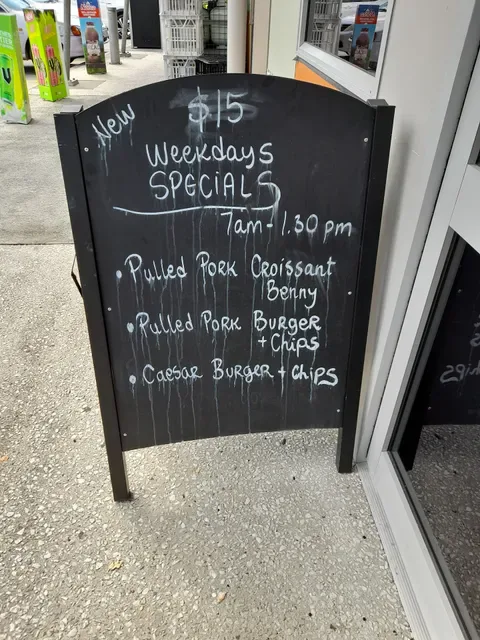 New
$15
Weekdays
SPECIALS
7am - 1.30 pm
• Pulled Pork Croissant
Benny
• Pulled Pork Burger
+ Chips
• Caesar Burger + chips